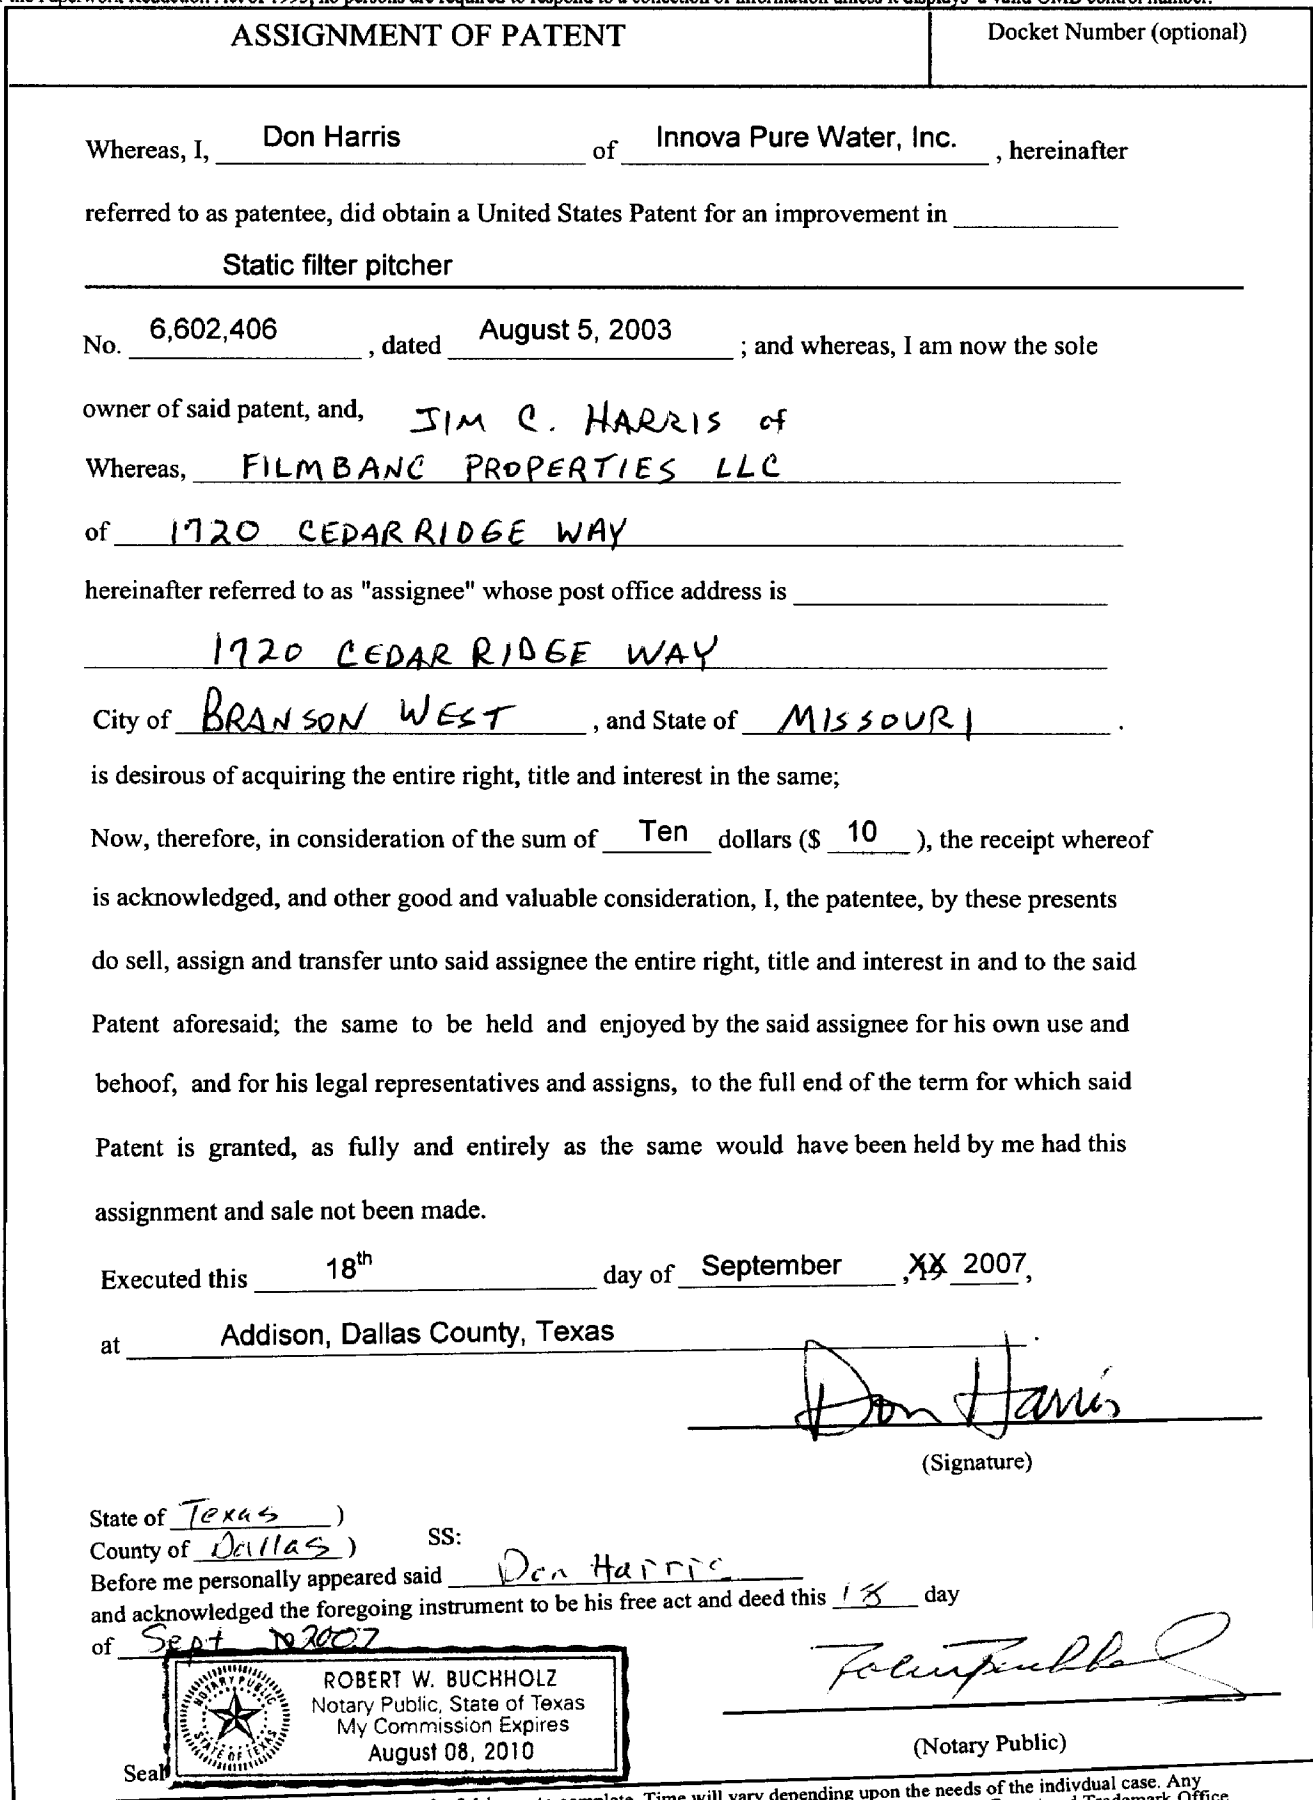 the Paperwork Reduction Act of 1995, no persons are required to respond to a collection of information unless it displays a valid OMB control number.
ASSIGNMENT OF PATENT
Docket Number (optional)
Whereas, I, Don Harris of Innova Pure Water, Inc. , hereinafter
referred to as patentee, did obtain a United States Patent for an improvement in
Static filter pitcher
No. 6,602,406 , dated August 5, 2003 ; and whereas, I am now the sole
owner of said patent, and, JIM C. HARRIS of
Whereas, FILMBANC PROPERTIES LLC
of 1720 CEDAR RIDGE WAY
hereinafter referred to as "assignee" whose post office address is
1720 CEDAR RIDGE WAY
City of BRANSON WEST , and State of MISSOURI .
is desirous of acquiring the entire right, title and interest in the same;
Now, therefore, in consideration of the sum of Ten dollars ($ 10 ), the receipt whereof
is acknowledged, and other good and valuable consideration, I, the patentee, by these presents
do sell, assign and transfer unto said assignee the entire right, title and interest in and to the said
Patent aforesaid; the same to be held and enjoyed by the said assignee for his own use and
behoof, and for his legal representatives and assigns, to the full end of the term for which said
Patent is granted, as fully and entirely as the same would have been held by me had this
assignment and sale not been made.
Executed this 18th day of September , 2007,
at Addison, Dallas County, Texas .
Don Harris
(Signature)
State of Texas )
County of Dallas ) SS:
Before me personally appeared said Don Harris
and acknowledged the foregoing instrument to be his free act and deed this 18 day
of Sept 2007
ROBERT W. BUCHHOLZ
Notary Public, State of Texas
My Commission Expires
August 08, 2010
NOTARY PUBLIC
STATE OF TEXAS
Seal
(Notary Public)
complete. Time will vary depending upon the needs of the indivdual case. Any
Trademark Office